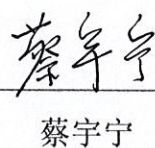 蔡宇宁
蔡宇宁